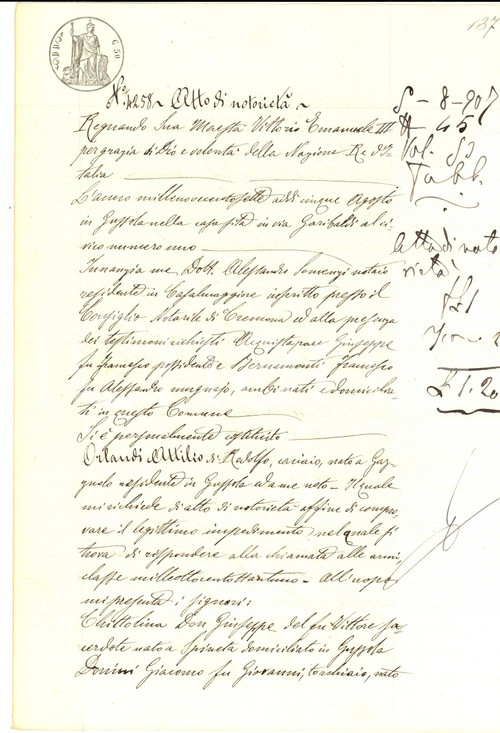 137
C. 50
N. 4258 ~ Atto di notorietà ~
Regnando Sua Maestà Vittorio Emanuele III
per grazia di Dio e volontà della Nazione Re d'I-
talia
L'anno millenovecentosette addì cinque Agosto
in Gussola nella casa sita in via Garibaldi al ci-
vico numero uno
Innanzi a me Dott. Alessandro Somenzi notaio
residente in Casalmaggiore inscritto presso il
Consiglio Notarile di Cremona ed alla presenza
dei testimoni richiesti Acquistapace Giuseppe
fu Francesco possidente e Bernamonti Francesco
fu Alessandro mugnajo, ambi nati e domicilia-
ti in questo Comune
Si è personalmente costituito
Orlandi Attilio di Rodolfo, caciaio, nato a Gaz-
zuolo residente in Gussola ed a me noto - Il quale
mi richiede di atto di notorietà affine di compro-
vare il legittimo impedimento nel quale si
trova di rispondere alla chiamata alle armi,
classe milleottocentottantuno - All'uopo
mi presenta i signori:
Chittolina Don Giuseppe del fu Vittore sa-
cerdote nato a Spineta domiciliato in Gussola
Donini Giacomo fu Giovanni, torchiaio, nato
5 - 8 - 907
# 45
Vol. 53
Tabb.
Atto di noto
rietà
£ 1
£ 1.20